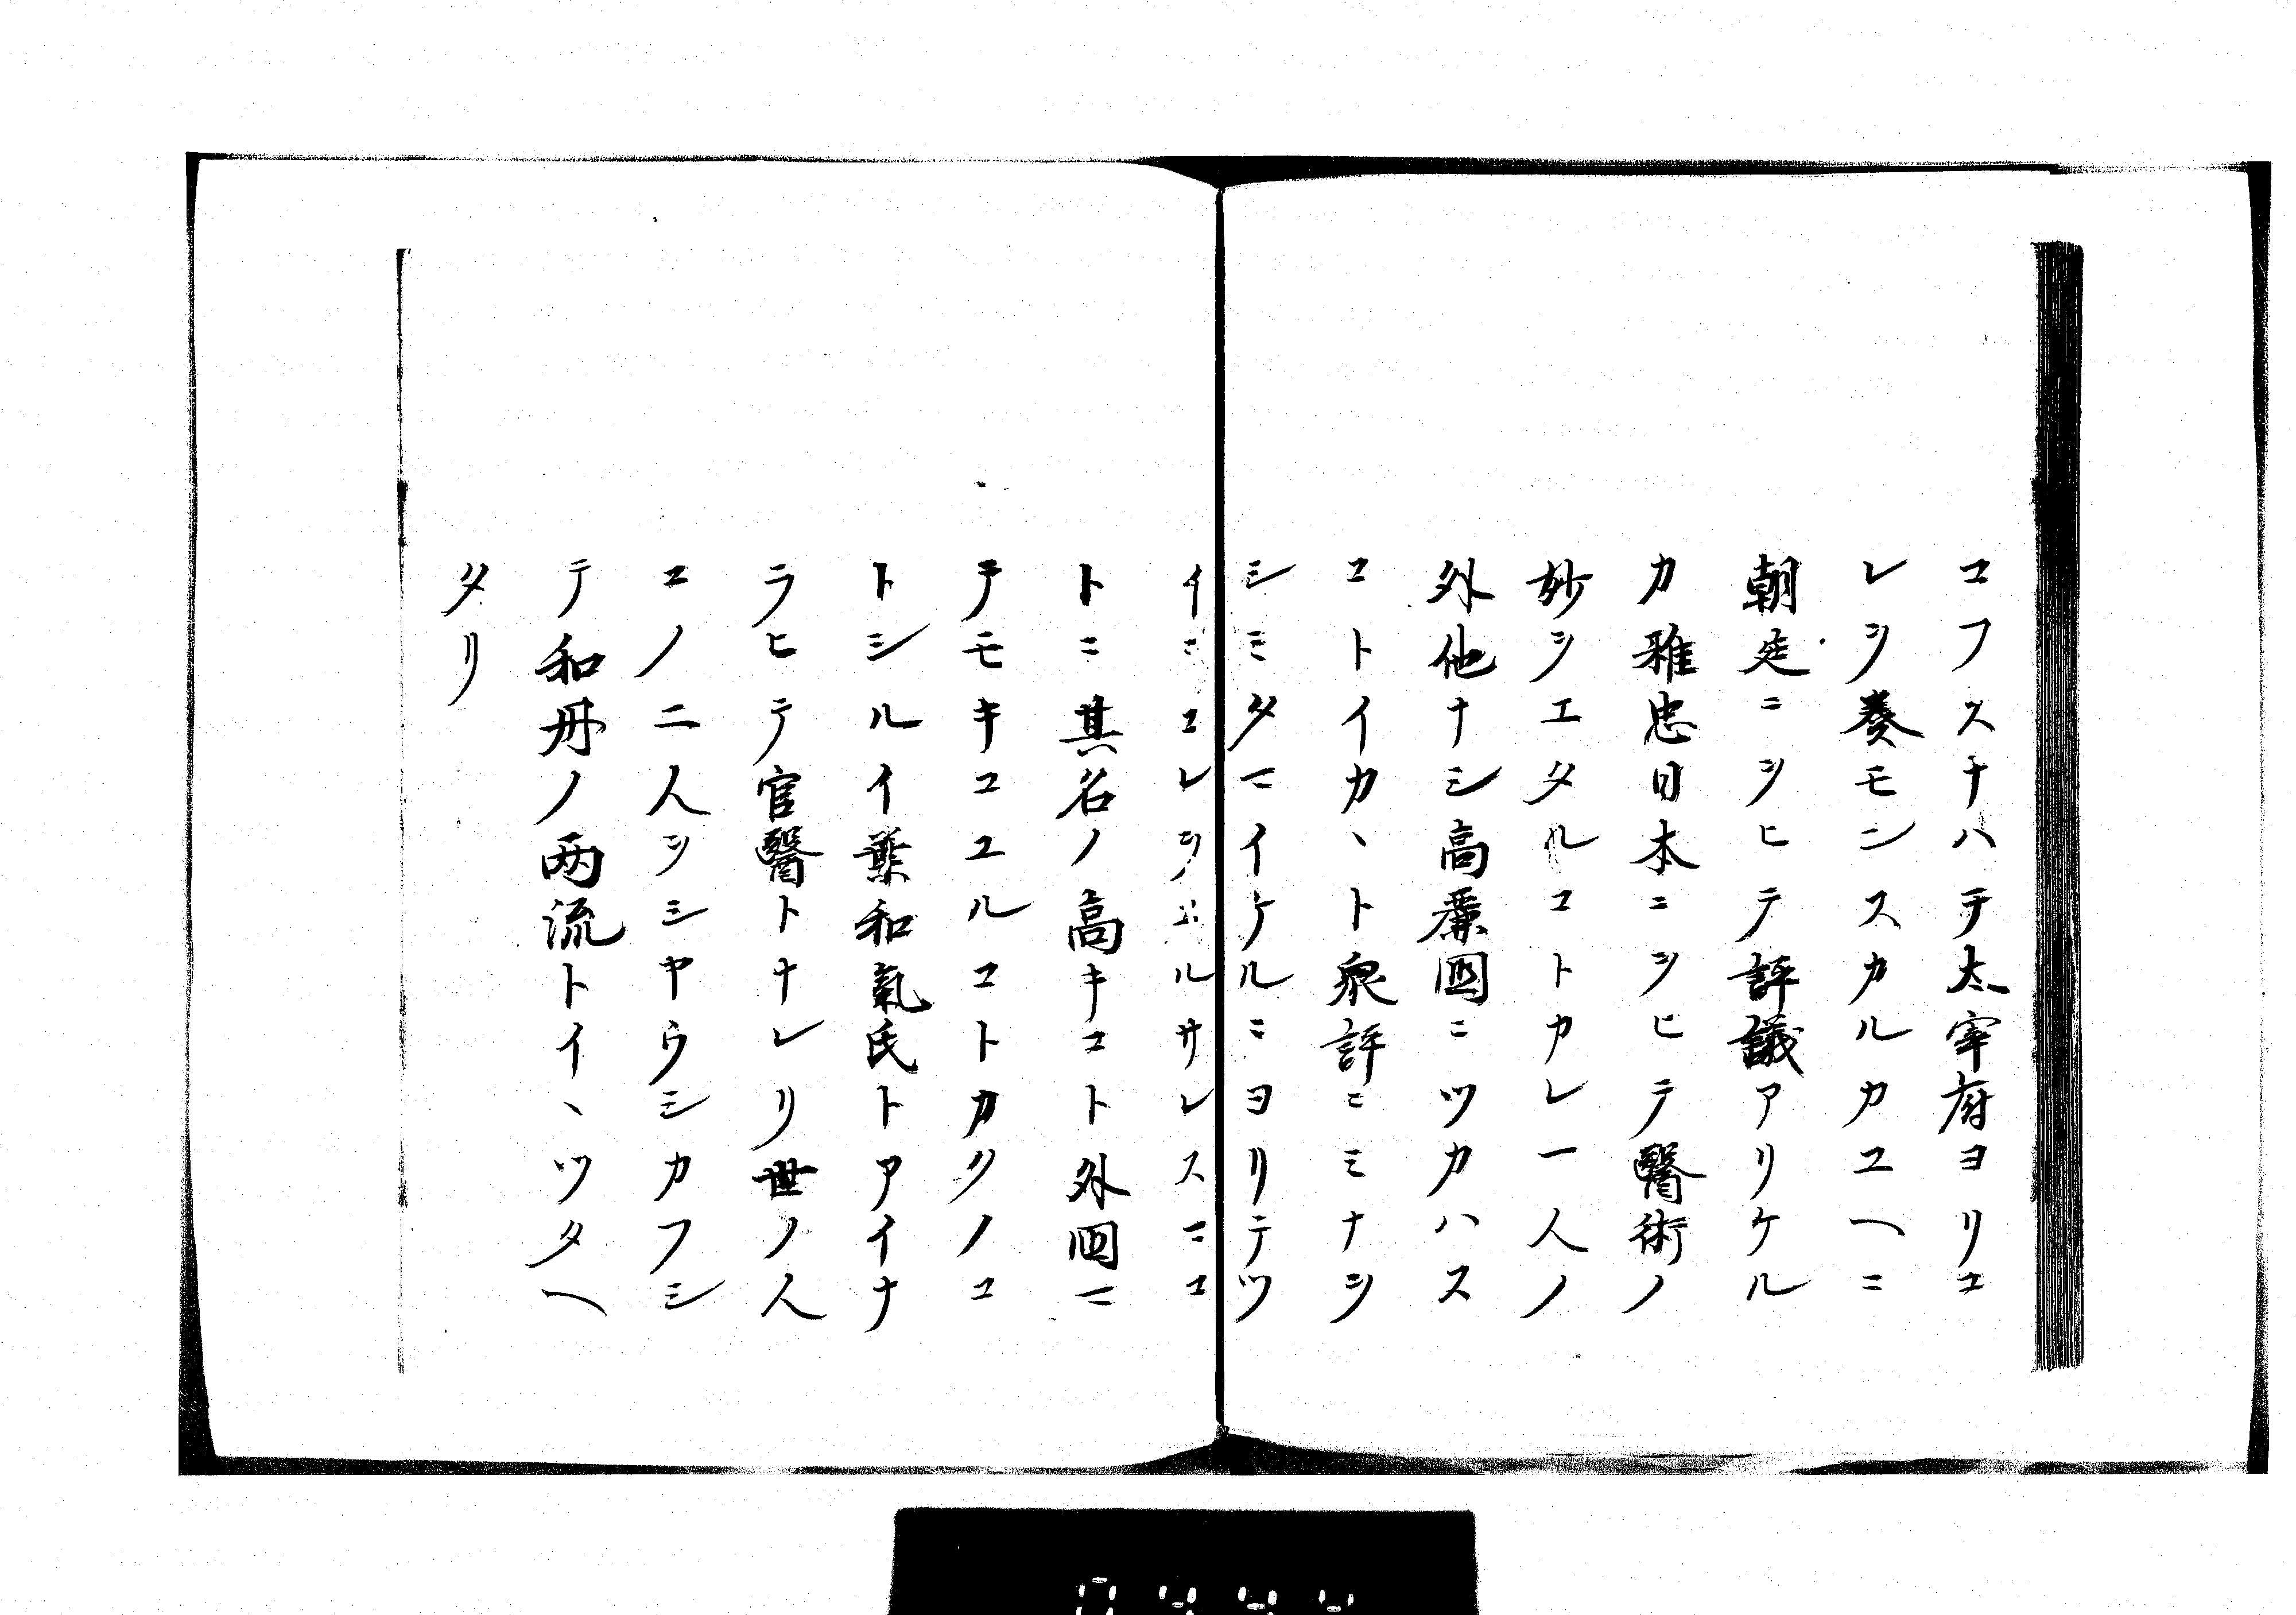 コフスナハチ太宰府ヨリコ
レヲ奏モンスカルカユヘニ
朝廷ニヲヒテ評議アリケル
カ雅忠日本ニヲヒテ醫術ノ
妙ヲエタルコトカレ一人ノ
外他ナシ高麗國ニツカハス
コトイカヽト衆評ニミナヲ
シミタマイケルニヨリテツ
イニコレヲユルサレスマコ
トニ其名ノ高キコト外国マ
テモキコユルコトカクノコ
トシルイ葉和氣氏トアイナ
ラヒテ官醫トナレリ世ノ人
コノ二人ヲシヤウシカフシ
テ和丹ノ两流トイヽツタヘ
タリ